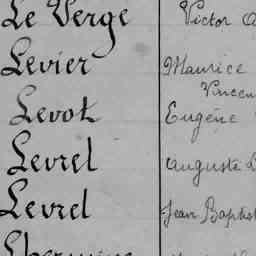 Le Verge Victor
Levier Maurice
Vincen
Levot Eugène
Levrel Auguste
Levrel Jean Baptist